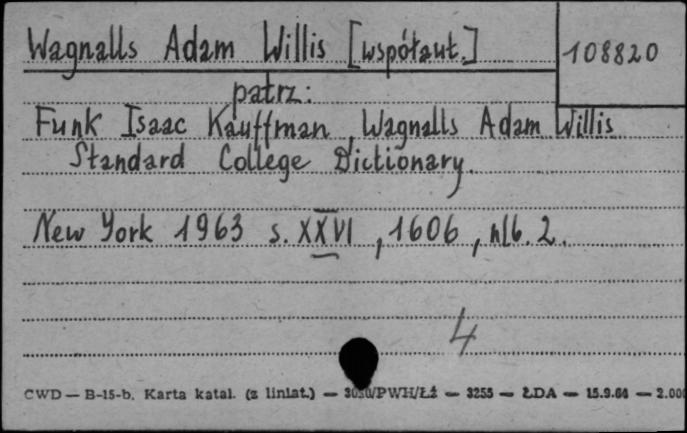 Wagnalls Adam Willis [współaut.] 108820
patrz:
Funk Isaac Kauffman, Wagnalls Adam Willis
Standard College Dictionary.
New York 1963 s. XXVI, 1606, nlb. 2.
4
CWD — B-15-b. Karta katal. (z liniat.) — /PWH/Łż — 3255 — ŁDA — 15.9.64 — 2.000